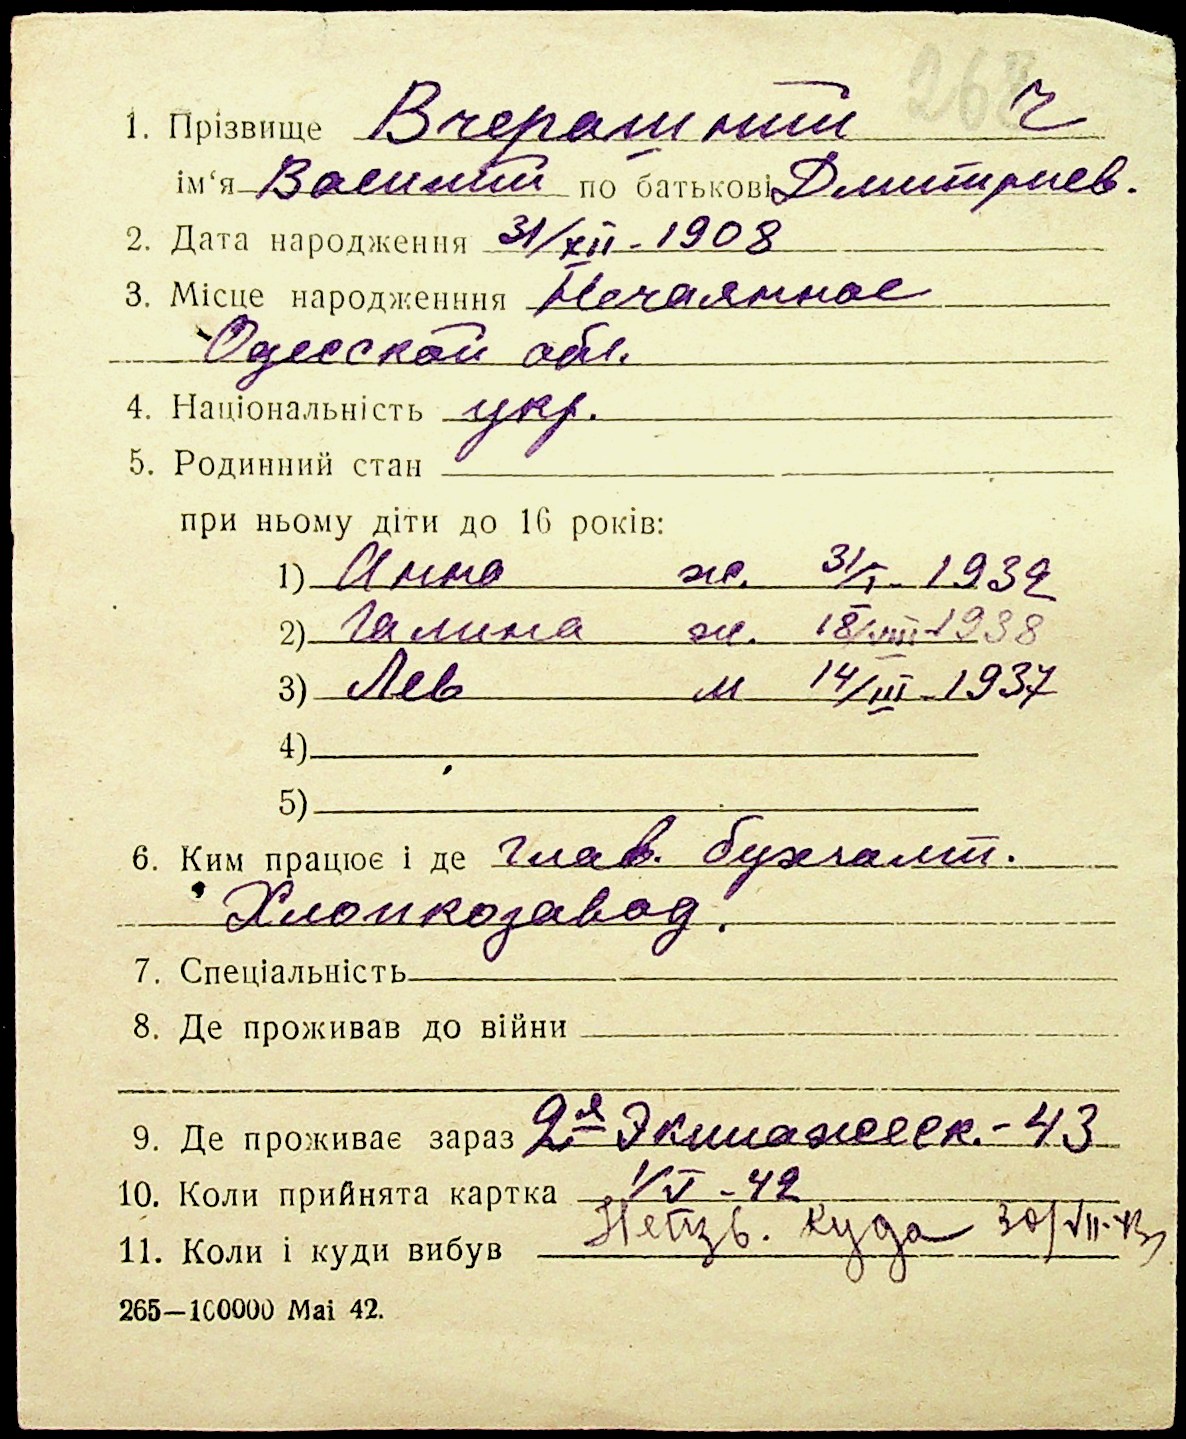 268
1. Прізвище Вчерашний Ч
ім‘я Василий по батькові Дмитриев.
2. Дата народження 31/XII - 1908
3. Місце народженння Нечаянное
Одесской обл.
4. Національність укр.
5. Родинний стан
при ньому діти до 16 років:
1) Анна ж. 31/I - 1932
2) Галина ж. 18/VIII - 1938
3) Лев м 14/III - 1937
4)
5)
6. Ким працює і де глав. бухгалт.
Хлопкозавод.
7. Спеціальність
8. Де проживав до війни
9. Де проживає зараз 2я Экипажеск. - 43
10. Коли прийнята картка 1/V - 42
11. Коли і куди вибув Неизв. куда 30/VII-43
265—100000 Маі 42.